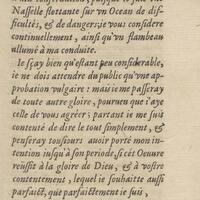 Nasselle flottante sur vn Ocean de dif-
ficultés, & de dangers; ie vous considere
continuellement, ainsi qu'vn flambeau
allumé à ma conduite.
Ie sçay bien qu'estant peu considerable,
ie ne dois attendre du public qu'vne ap-
probation vulgaire : mais ie me passeray
de toute autre gloire, pourueu que i'aye
celle de vous agréer : partant ie me suis
contenté de dire le tout simplement, &
penseray tousiours auoir porté mon in-
tention iusqu'à son periode, si cét Oeuure
reüssit à la gloire de Dieu, & à vostre
contentement, lequel ie souhaitte aussi
parfaict, que parfaictement ie suis,